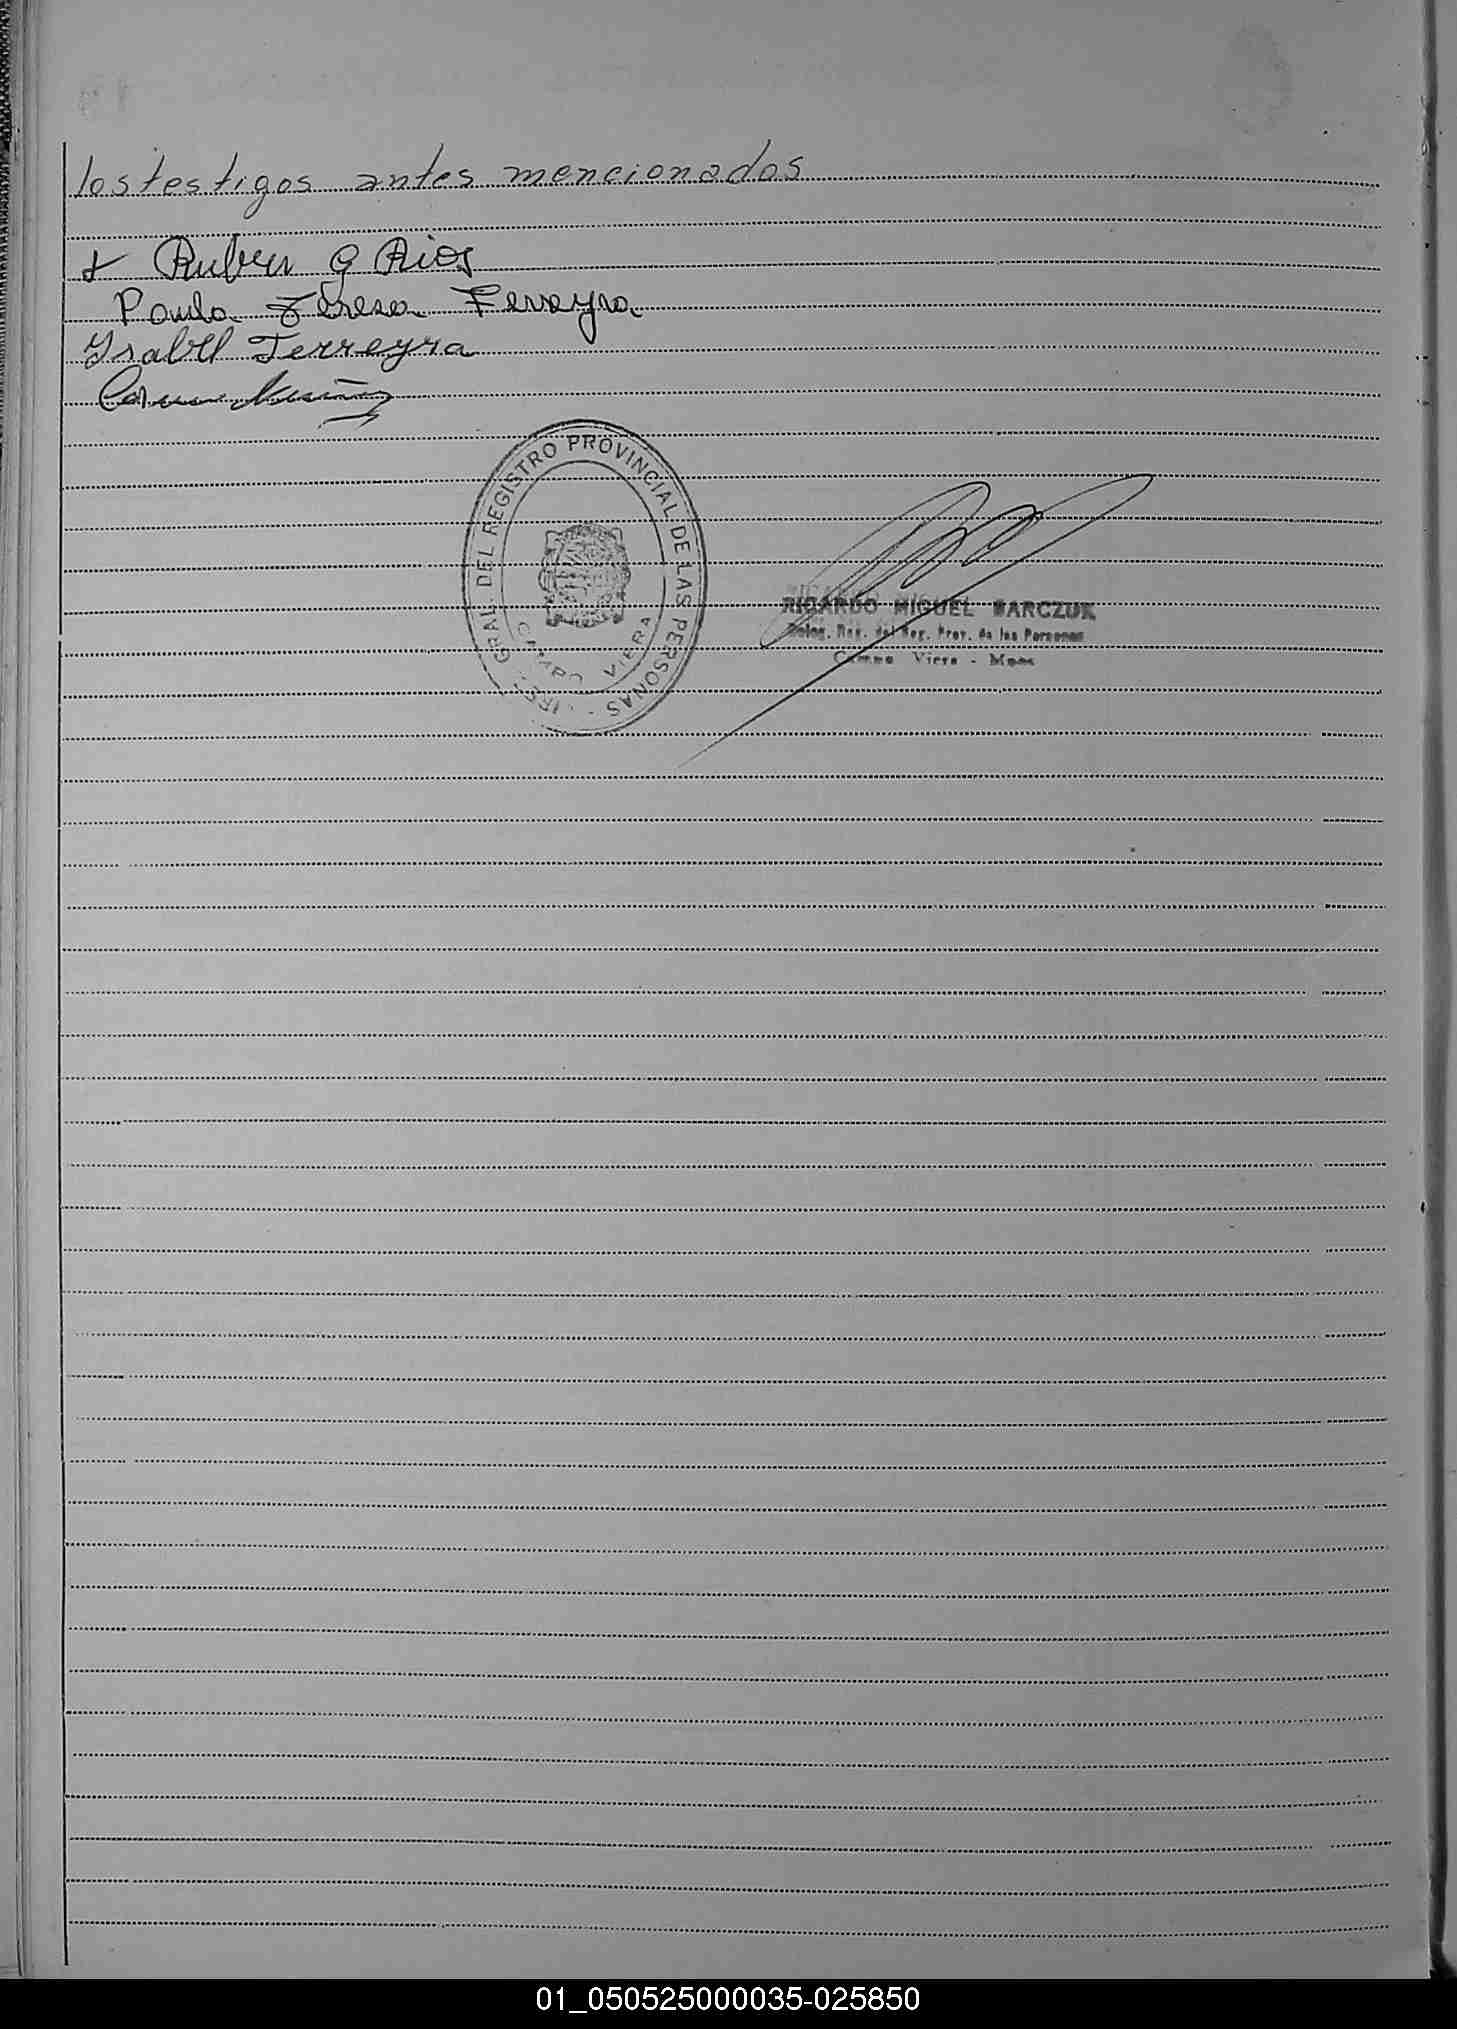 los testigos antes mencionados
+ Ruben G Rios
Paula Teresa Ferreyra
Ysabel Ferreyra
DIREC. GRAL. DEL REGISTRO PROVINCIAL DE LAS PERSONAS -
CAMPO VIERA
RICARDO MIGUEL BARCZUK
Deleg. Reg. del Reg. Prov. de las Personas
Campo Viera - Mnes
01_050525000035-025850